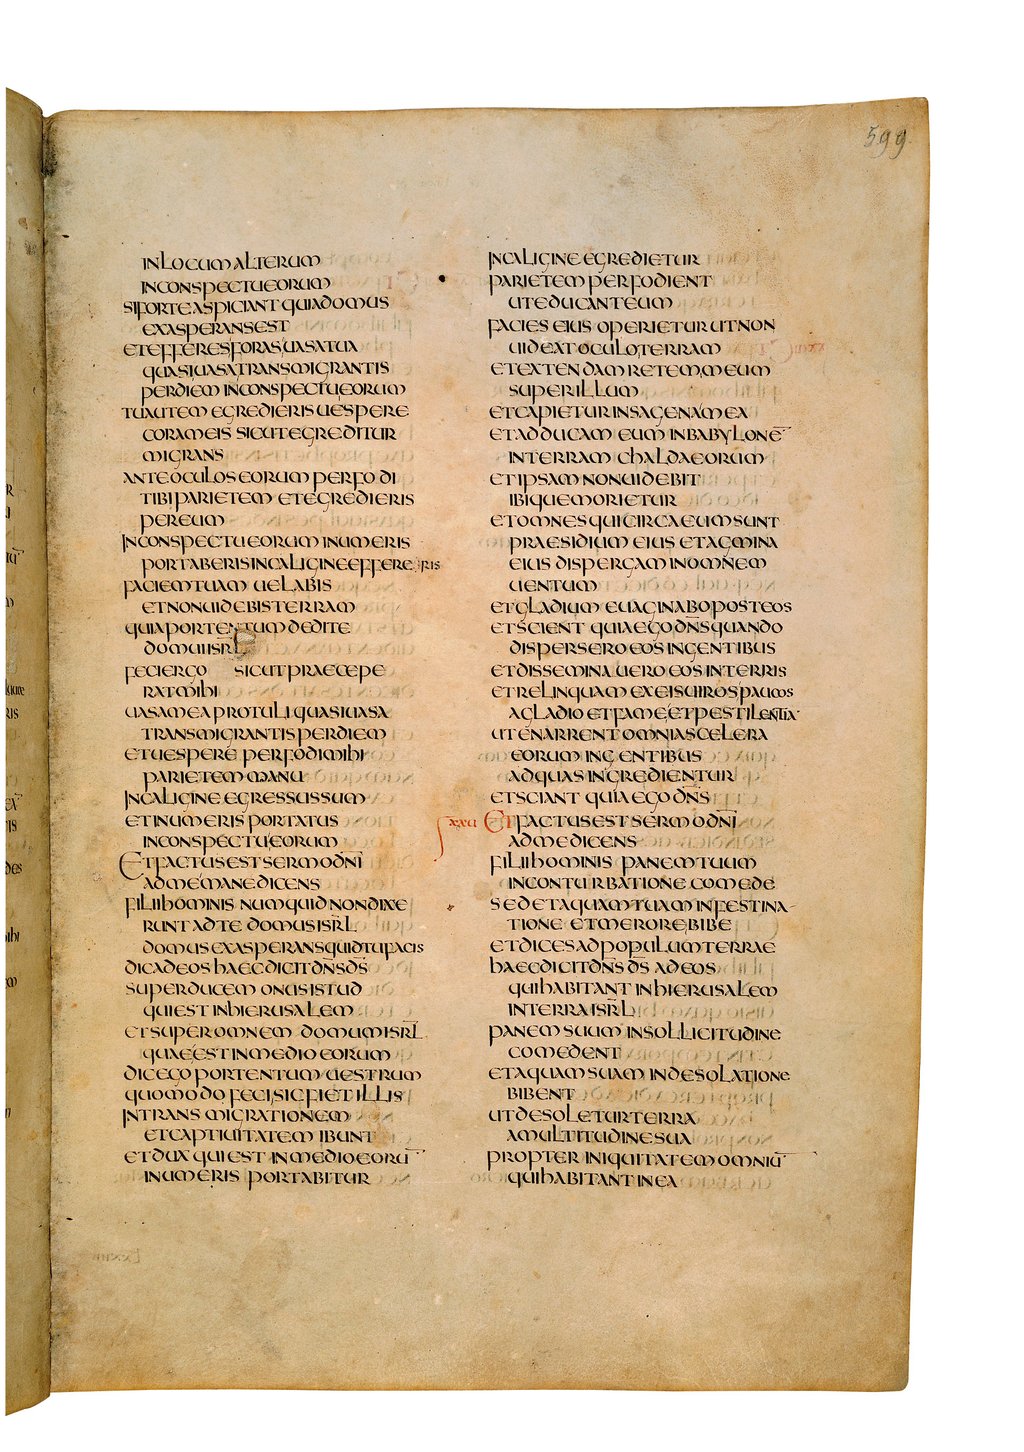 599
IN LOCUM ALTERUM
IN CONSPECTU EORUM
SI FORTE ASPICIANT QUIA DOMUS
EXASPERANS EST
ET EFFERES FORAS UASA TUA
QUASI UASA TRANSMIGRANTIS
PER DIEM IN CONSPECTU EORUM
TU AUTEM EGREDIERIS UESPERE
CORAM EIS SICUT EGREDITUR
MIGRANS
ANTE OCULOS EORUM PERFODI
TIBI PARIETEM ET EGREDIERIS
PER EUM
IN CONSPECTU EORUM IN UMERIS
PORTABERIS IN CALIGINE EFFERERIS
FACIEM TUAM UELABIS
ET NON UIDEBIS TERRAM
QUIA PORTENTUM DEDI TE
DOMUI ISRL̄
FECI ERGO SICUT PRAECEPE
RAT MIHI
UASA MEA PROTULI QUASI UASA
TRANSMIGRANTIS PER DIEM
ET UESPERE PERFODI MIHI
PARIETEM MANU
IN CALIGINE EGRESSUS SUM
ET IN UMERIS PORTATUS
IN CONSPECTU EORUM
ET FACTUS EST SERMO DN̄I
AD ME MANE DICENS
FILII HOMINIS NUMQUID NON DIXE
RUNT AD TE DOMUS ISRL̄
DOMUS EXASPERANS QUID TU FACIS
DIC AD EOS HAEC DICIT DN̄S DS̄
SUPER DUCEM ONUS ISTUD
QUI EST IN HIERUSALEM
ET SUPER OMNEM DOMUM ISRL̄
QUAE EST IN MEDIO EORUM
DIC EGO PORTENTUM UESTRUM
QUOMODO FECI SIC FIET ILLIS
IN TRANSMIGRATIONEM
ET CAPTIUITATEM IBUNT
ET DUX QUI EST IN MEDIO EORŪ
IN UMERIS PORTABITUR
IN CALIGINE EGREDIETUR
PARIETEM PERFODIENT
UT EDUCANT EUM
FACIES EIUS OPERIETUR UT NON
UIDEAT OCULO TERRAM
ET EXTENDAM RETEM MEUM
SUPER ILLUM
ET CAPIETUR IN SAGENA MEA
ET ADDUCAM EUM IN BABYLONĒ
IN TERRAM CHALDAEORUM
ET IPSAM NON UIDEBIT
IBIQUE MORIETUR
ET OMNES QUI CIRCA EUM SUNT
PRAESIDIUM EIUS ET AGMINA
EIUS DISPERGAM IN OMNEM
UENTUM
ET GLADIUM EUAGINABO POST EOS
ET SCIENT QUIA EGO DN̄S QUANDO
DISPERSERO EOS IN GENTIBUS
ET DISSEMINAUERO EOS IN TERRIS
ET RELINQUAM EX EIS UIROS PAUCOS
A GLADIO ET FAME ET PESTILENTIA
UT ENARRENT OMNIA SCELERA
EORUM IN GENTIBUS
AD QUAS INGREDIENTUR
ET SCIANT QUIA EGO DN̄S
XXU ET FACTUS EST SERMO DN̄I
AD ME DICENS
FILII HOMINIS PANEM TUUM
IN CONTURBATIONE COMEDE
SED ET AQUAM TUAM IN FESTINA
TIONE ET MERORE BIBE
ET DICES AD POPULUM TERRAE
HAEC DICIT DN̄S DS̄ AD EOS
QUI HABITANT IN HIERUSALEM
IN TERRA ISRL̄
PANEM SUUM IN SOLLICITUDINE
COMEDENT
ET AQUAM SUAM IN DESOLATIONE
BIBENT
UT DESOLETUR TERRA
A MULTITUDINE SUA
PROPTER INIQUITATEM OMNIŪ
QUI HABITANT IN EA